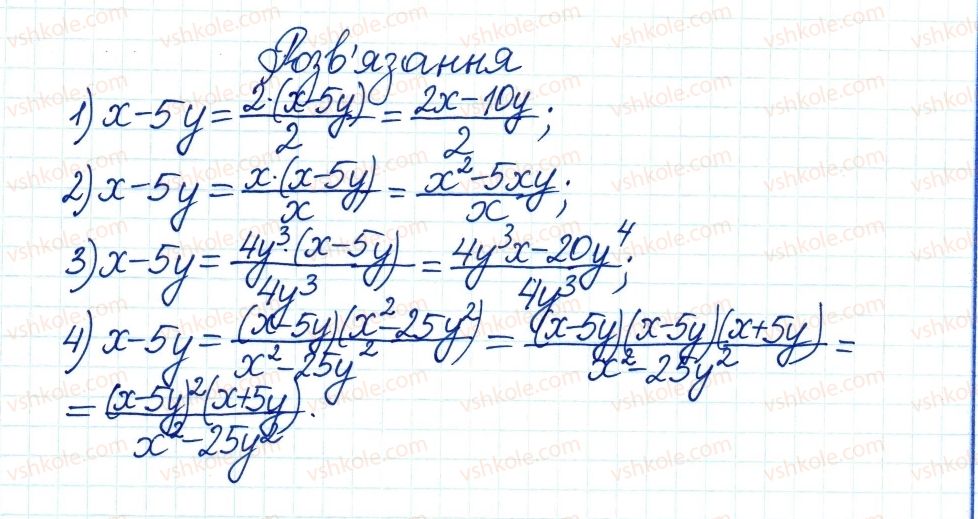 Розв'язання
1) x-5y = \frac{2·(x-5y)}{2} = \frac{2x-10y}{2};
2) x-5y = \frac{x·(x-5y)}{x} = \frac{x^2-5xy}{x};
3) x-5y = \frac{4y^3·(x-5y)}{4y^3} = \frac{4y^3x-20y^4}{4y^3};
4) x-5y = \frac{(x-5y)(x^2-25y^2)}{x^2-25y^2} = \frac{(x-5y)(x-5y)(x+5y)}{x^2-25y^2} =
= \frac{(x-5y)^2(x+5y)}{x^2-25y^2}.
vshkole.com